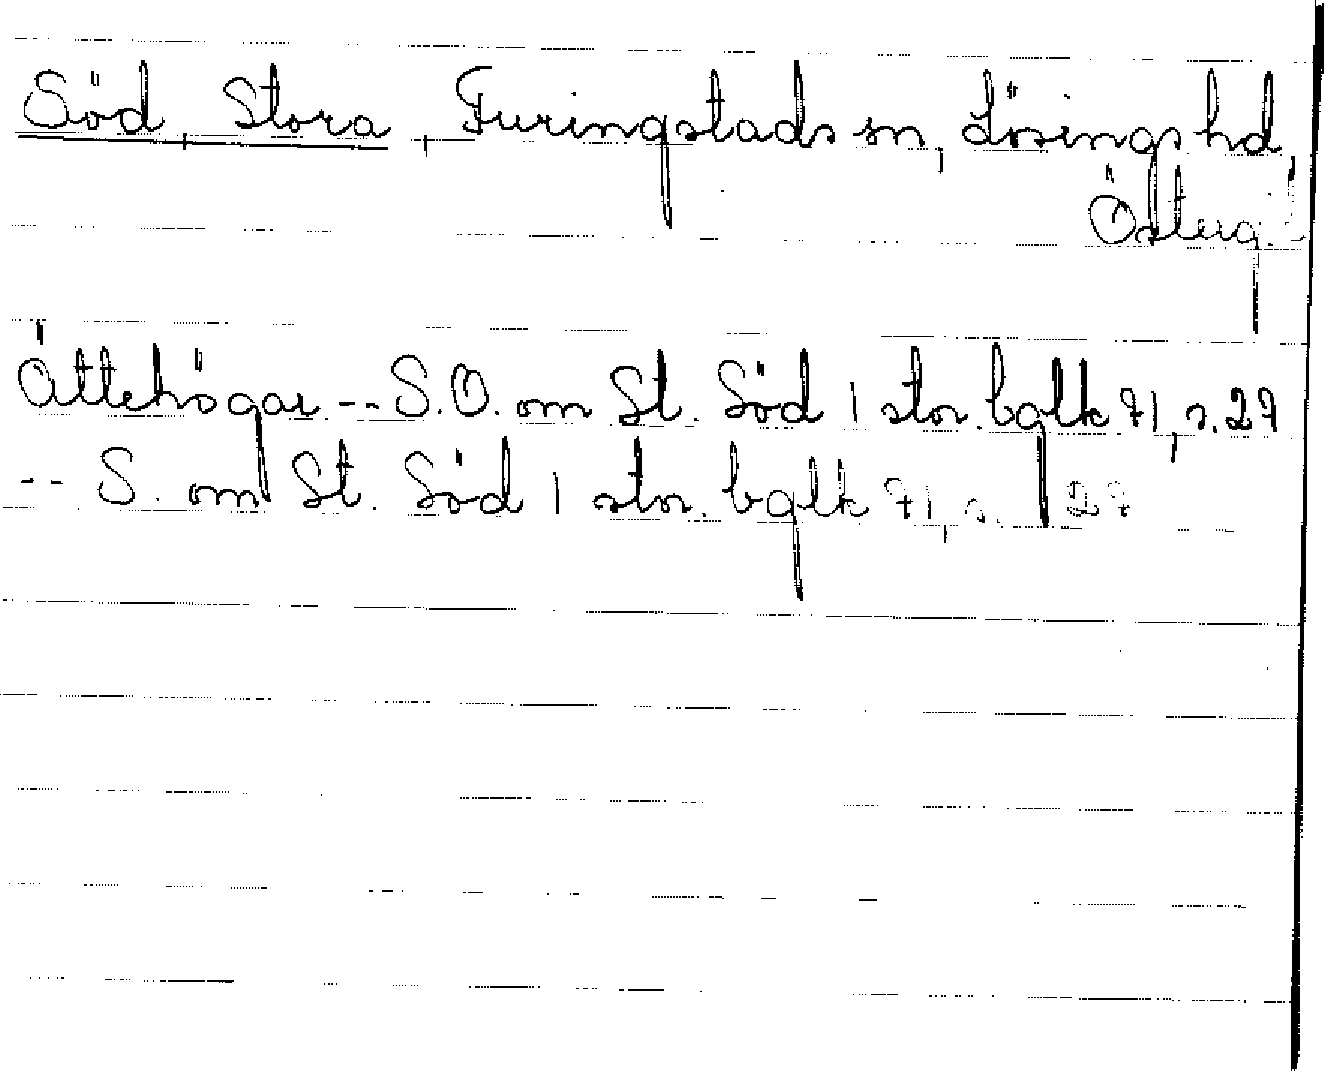 Söd, Stora, Furingstads sn, Lösings hd,
Österg.
Ättehögar -- S.O. om St. Söd 1 stor. bglk 71, s. 27
-- S. om St. Söd 1 stor. bglk 71, s. 27